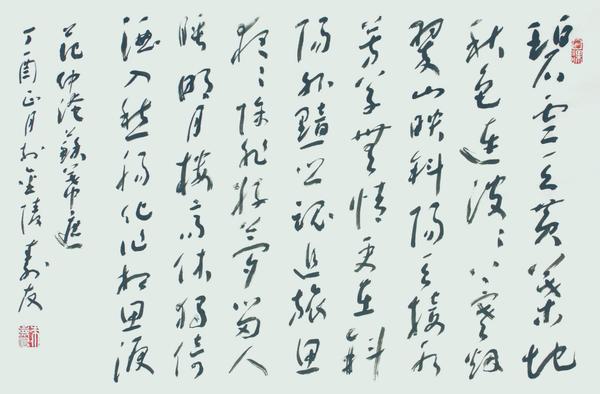 碧雲天黄葉地
秋色連波〻上寒烟
翠山映斜陽天接水
芳草無情更在斜
陽外黯鄉魂追旅思
夜〻除非好夢留人
睡明月樓高休獨倚
酒入愁腸化作相思淚
范仲淹蘇幕遮
丁酉正月於金陵壽友